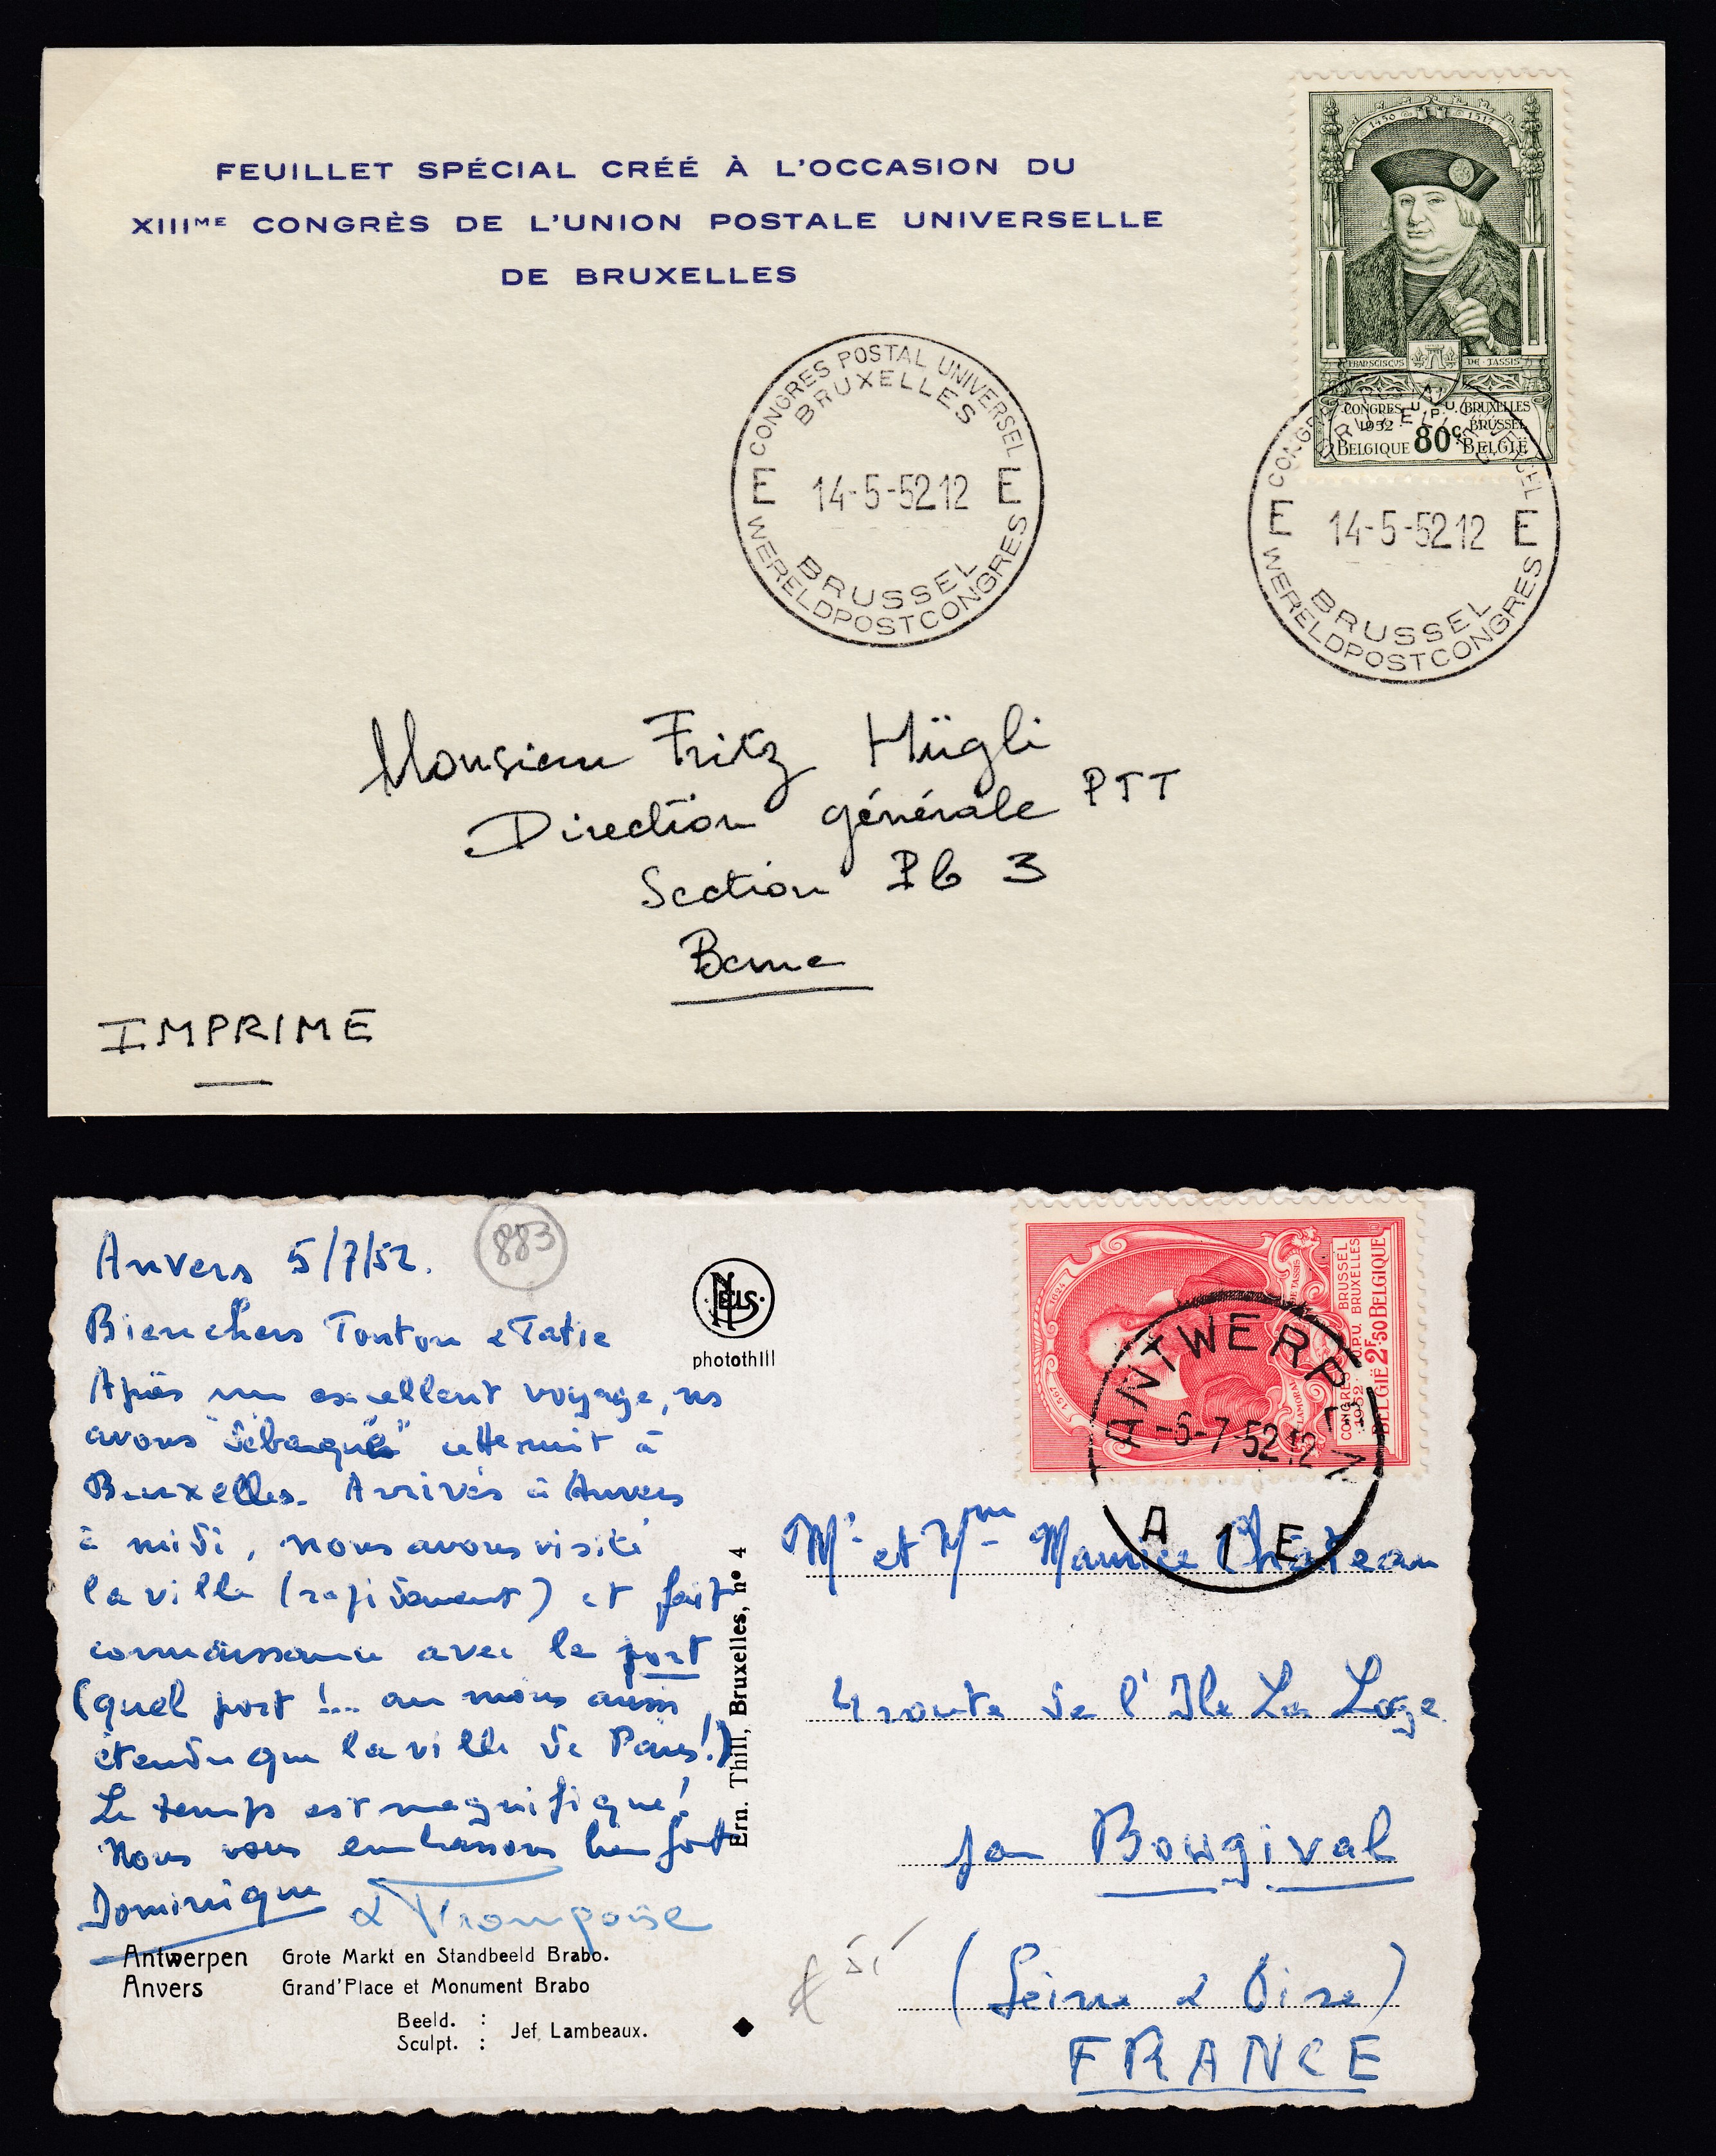 FEUILLET SPÉCIAL CRÉÉ À L'OCCASION DU
XIIIME CONGRÈS DE L'UNION POSTALE UNIVERSELLE
DE BRUXELLES
1450 1517
FRANSCISCUS DE TASSIS
CONGRES U.P.U. BRUXELLES
1952 BRUSSEL
BELGIQUE 80c BELGIË
CONGRES POSTAL UNIVERSEL
BRUXELLES
E 14-5-5212 E
BRUSSEL
WERELDPOSTCONGRES
E 14-5-5212 E
BRUSSEL
WERELDPOSTCONGRES
Monsieur Fritz Hügli
Direction générale PTT
Section Pb 3
Berne
IMPRIME
Anvers 5/7/52.
883
Bien chers Tonton & Tatie
Après un excellent voyage, ns
avons "débarqué" cette nuit à
Bruxelles. Arrivés à Anvers
à midi, nous avons visité
la ville (rapidement) et fait
connaissance avec le port
(quel port !... au moins aussi
étendu que la ville de Paris!)
Le temps est magnifique!
Nous vous embrassons bien fort
Dominique &
NELS
photothill
Ern. Thill, Bruxelles, nº 4
1624
1567
CONGRES U.P.U. BRUSSEL
1952 BRUXELLES
BELGIË 2F50 BELGIQUE
ANTWERPEN
-6-7-5212
A 1 E
Mr et Mme Maurice Chateau
4 route de l'Ile La Loge
par Bougival
(Seine & Oise)
FRANCE
Antwerpen Grote Markt en Standbeeld Brabo.
Anvers Grand'Place et Monument Brabo
Beeld. :
Sculpt. : Jef Lambeaux.